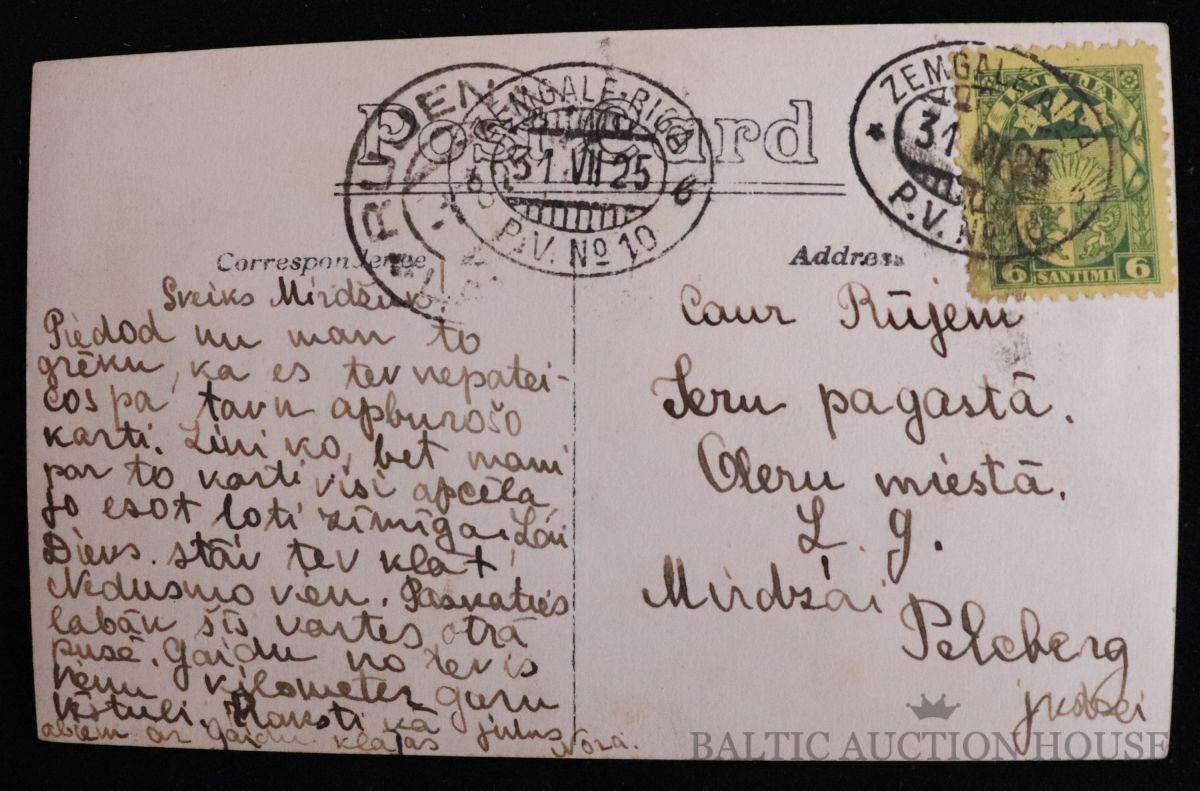 Post Card
ZEMGALE-RIGA
31.VII 25
6
P.V. No 10
ZEMGALE
31 VII 25
P.V. No
LATVIJA
6 SANTIMI 6
Correspondence
Address
Sveiks Mirdziņ
Piedod nu man to
grēku, ka es tev nepatei-
cos pa tavu apburošo
karti. Zini ko, bet mani
par to karti visi apcēla
jo esot ļoti zīmīga. Lai
Dievs stāv tev klāt,
Nedusmo vien. Paskaties
labāk šīs kartes otrā
pusē. Gaidu no tevis
vienu kilometer garu
vēstuli. Raksti kā
abiem ar Gaidu klājas Nora.
Caur Rūjeni
Ieru pagastā.
Oleru miestā.
L. g.
Mirdzai
Pelcberg
jkdzei
BALTIC AUCTION HOUSE